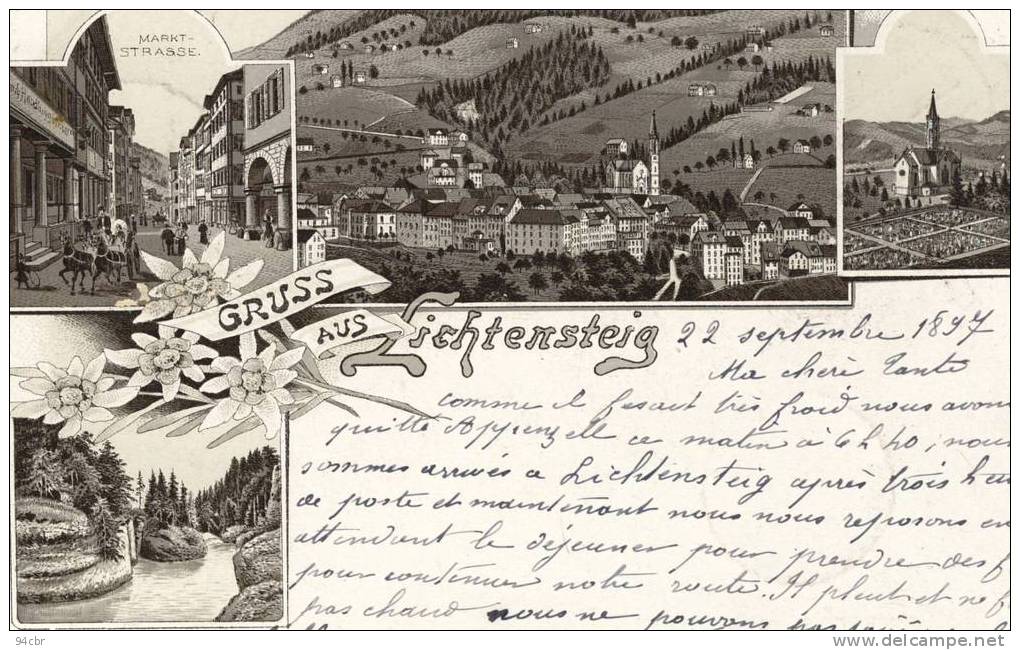 MARKT-
STRASSE.
GRUSS
AUS
Lichtensteig
22 septembre 1897
Ma chère Tante
comme il fesait très froid nous avons
quitté Appenzell ce matin à 6h 40, nous
sommes arrivés a Lichtensteig après trois heu
de poste et maintenant nous nous reposons en
attendant le déjeuner pour prendre des f
pour continuer notre route. Il pleut et ne f
pas chaud nous ne pouvons pas
94cbr
www.delcampe.net